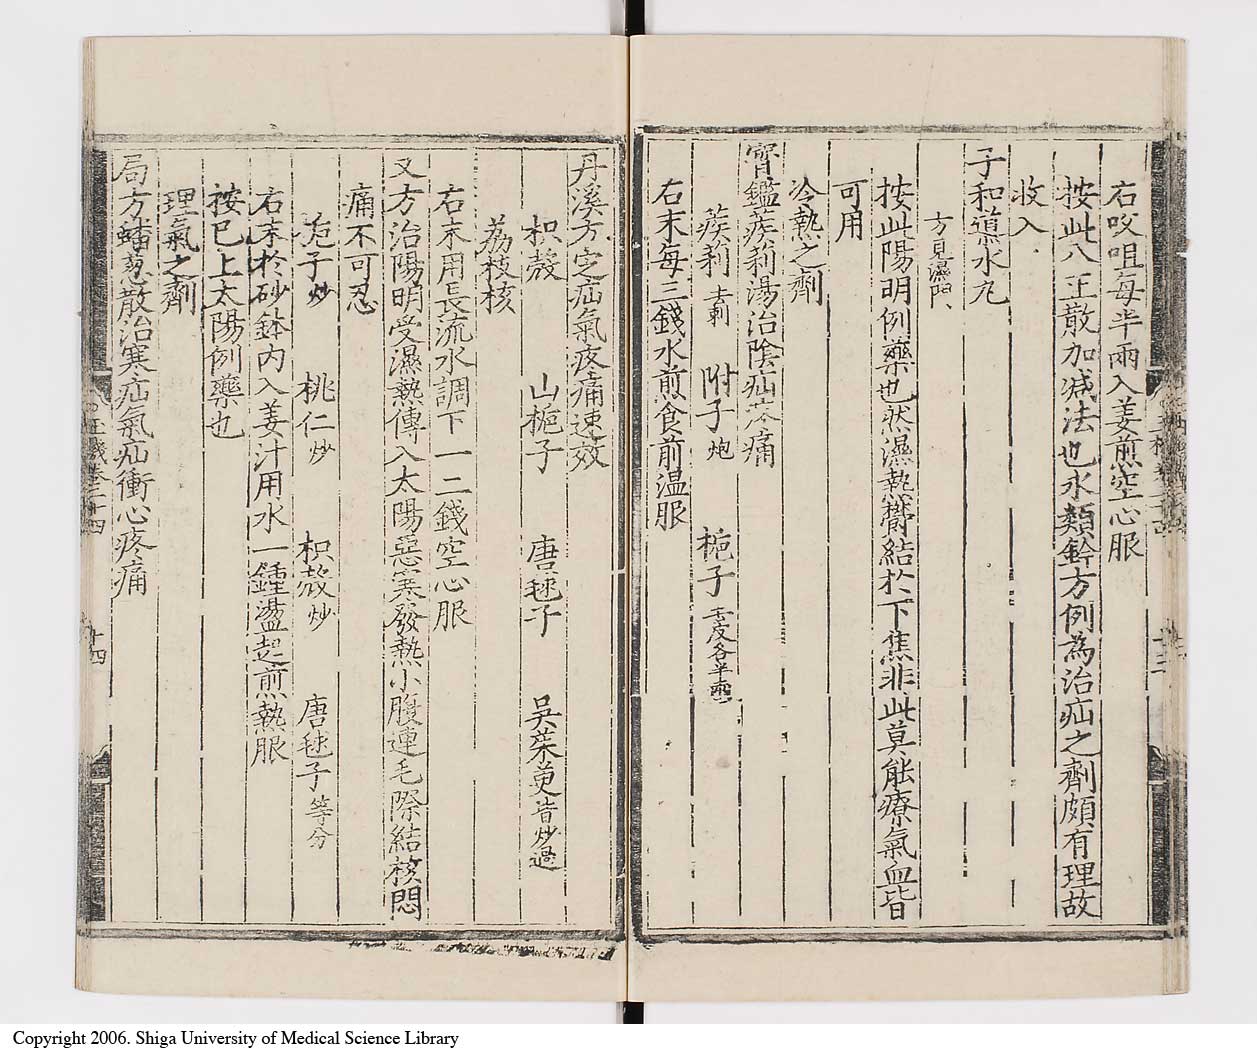 右㕮咀每半兩入姜煎空心服
按此八正散加減法也水類鈐方例為治疝之劑頗有理故
收入
子和導水丸
方見濕門
按此陽明例藥也然濕熱欝結於下焦非此莫能療氣血皆
可用
冷熱之劑
寶鑑蒺莉湯治陰疝疼痛
蒺莉 去刺 附子 炮 梔子 去皮各半兩
右末每三錢水煎食前温服
丹溪方定疝氣疼痛速效
枳殼 山梔子 唐毬子 吳茱萸 皆炒過
荔枝核
右末用長流水調下一二錢空心服
又方治陽明受濕熱傳入太陽惡寒發熱小腹連毛際結核悶
痛不可忍
梔子 炒 桃仁 炒 枳殼 炒 唐毬子 等分
右末於砂鉢內入姜汁用水一鍾盪起煎熱服
按已上太陽例藥也
理氣之劑
局方蟠葱散治寒疝氣疝衝心疼痛
玉機卷二十四
十四
Copyright 2006. Shiga University of Medical Science Library